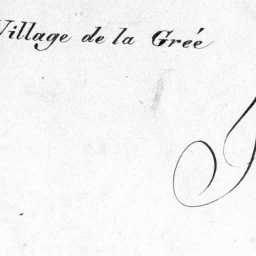 Village de la Gréé